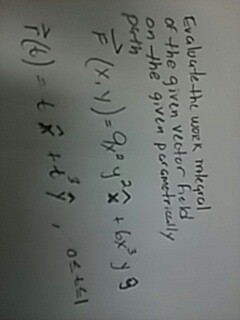 Evaluate the work integral
of the given vector field
on the given parametrically
path
F⃗ (x,y) = 9x²y² x̂ + 6x³y ŷ
r⃗(t) = t x̂ + t³ ŷ , 0≤t≤1